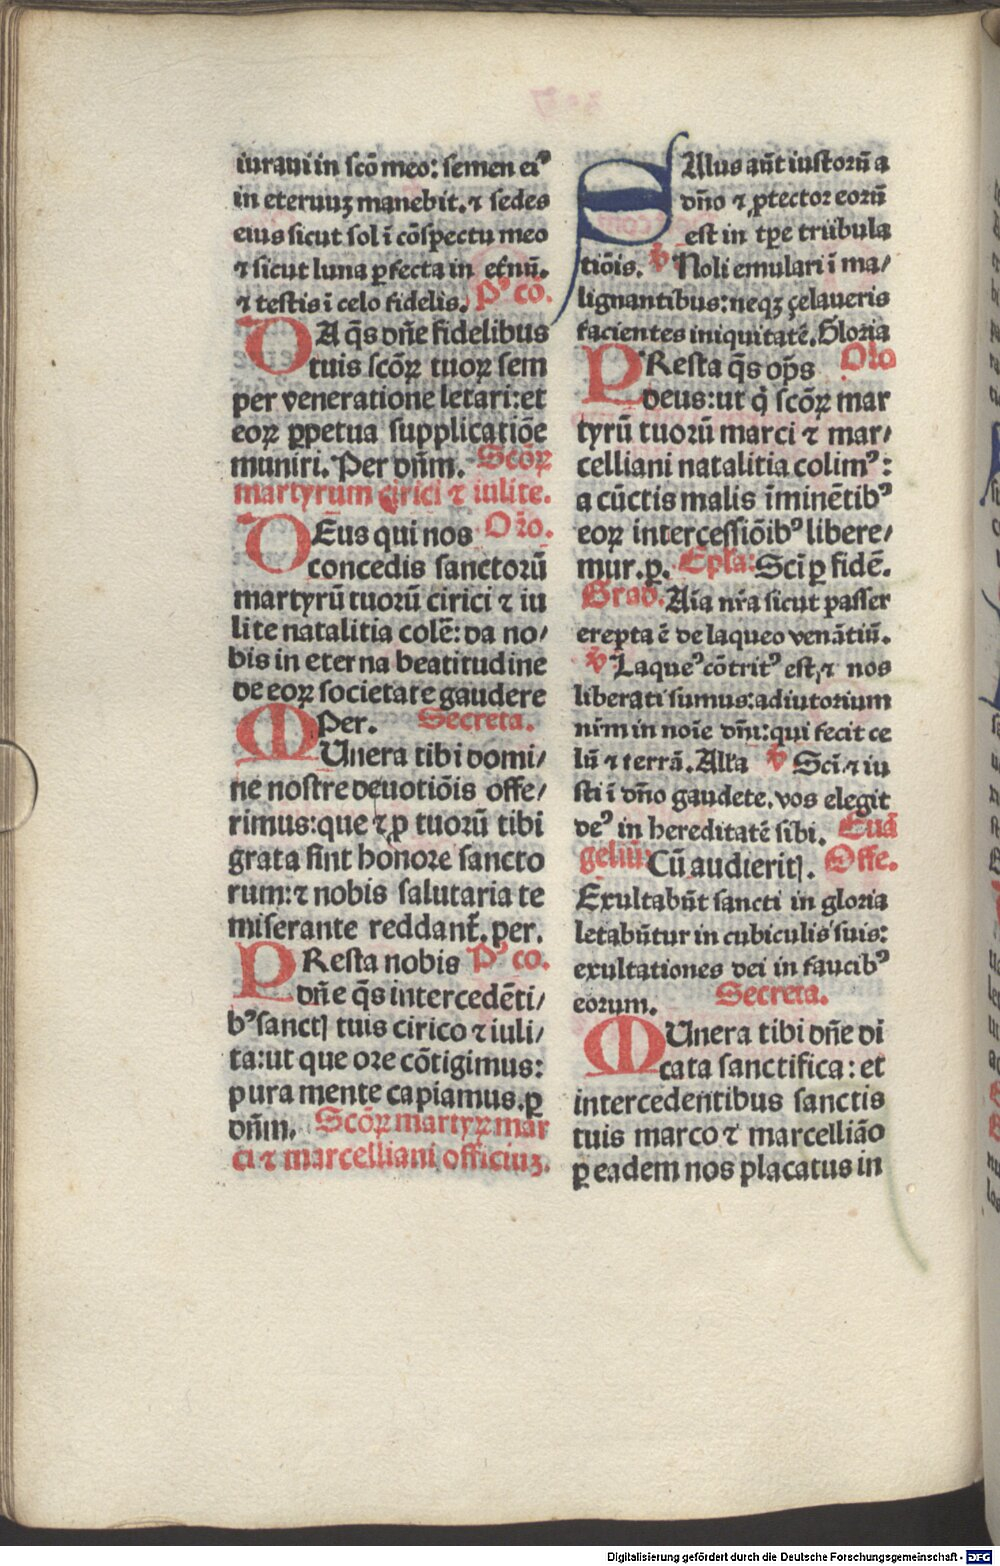 iuraui in scō meo: semen ei⁹
in eternuꝫ manebit. ⁊ sedes
eius sicut sol ī cōspectu meo
⁊ sicut luna ꝑfecta in et̄nū.
⁊ testis ī celo fidelis. P⁹ cō.
DA q̄s dn̄e fidelibus
tuis scōꝝ tuoꝝ sem
per veneratione letari: et
eoꝝ ꝑpetua supplicatiōe
muniri. Per dn̄m. Scōꝝ
martyrum cirici ⁊ iulite.
DEus qui nos Oro.
concedis sanctorū
martyrū tuorū cirici ⁊ iu
lite natalitia colē: da no/
bis in eterna beatitudine
de eoꝝ societate gaudere
Per. Secreta.
MUnera tibi domi/
ne nostre deuotiōis offe/
rimus: que ⁊ ꝓ tuorū tibi
grata sint honore sancto
rum: ⁊ nobis salutaria te
miserante reddant̄. per.
PResta nobis P⁹ co.
dn̄e q̄s intercedēti/
b⁹ sanctꝭ tuis cirico ⁊ iuli/
ta: ut que ore cōtigimus:
pura mente capiamus. ꝑ
dn̄m. Scōꝝ martyꝝ mar
ci ⁊ marcelliani officiuꝫ.
SAlus aūt iustorū a
dn̄o ⁊ ꝓtector eorū
est in tp̄e tribula
tiōis. ℣ Noli emulari ī ma/
lignantibus: neqꝫ çelaueris
facientes iniquitatē. Gloria
PResta q̄s op̄s Oro
deus: ut q̇ scōꝝ mar
tyrū tuorū marci ⁊ mar/
celliani natalitia colim⁹:
a cūctis malis īminētib⁹
eoꝝ intercessiōib⁹ libere/
mur. ꝑ. Ep̄la: Sci̅ ꝑ fidē.
Grad. Aīa nr̄a sicut passer
erepta ē de laqueo venātiū.
℣ Laque⁹ cōtrit⁹ est, ⁊ nos
liberati sumus: adiutorium
nr̄m in noīe dn̄i: qui fecit ce
lū ⁊ terrā. All'a ℣ Sci̅ ⁊ iu
sti ī dn̄o gaudete. vos elegit
de⁹ in hereditatē sibi. Euā
geliū: Cū audieritꝭ. Offe.
Exultabūt sancti in gloria
letabūtur in cubiculis suis:
exultationes dei in faucib⁹
eorum. Secreta.
MUnera tibi dn̄e di
cata sanctifica: et
intercedentibus sanctis
tuis marco ⁊ marcelliāo
ꝑ eadem nos placatus in
Digitalisierung gefördert durch die Deutsche Forschungsgemeinschaft - DFG